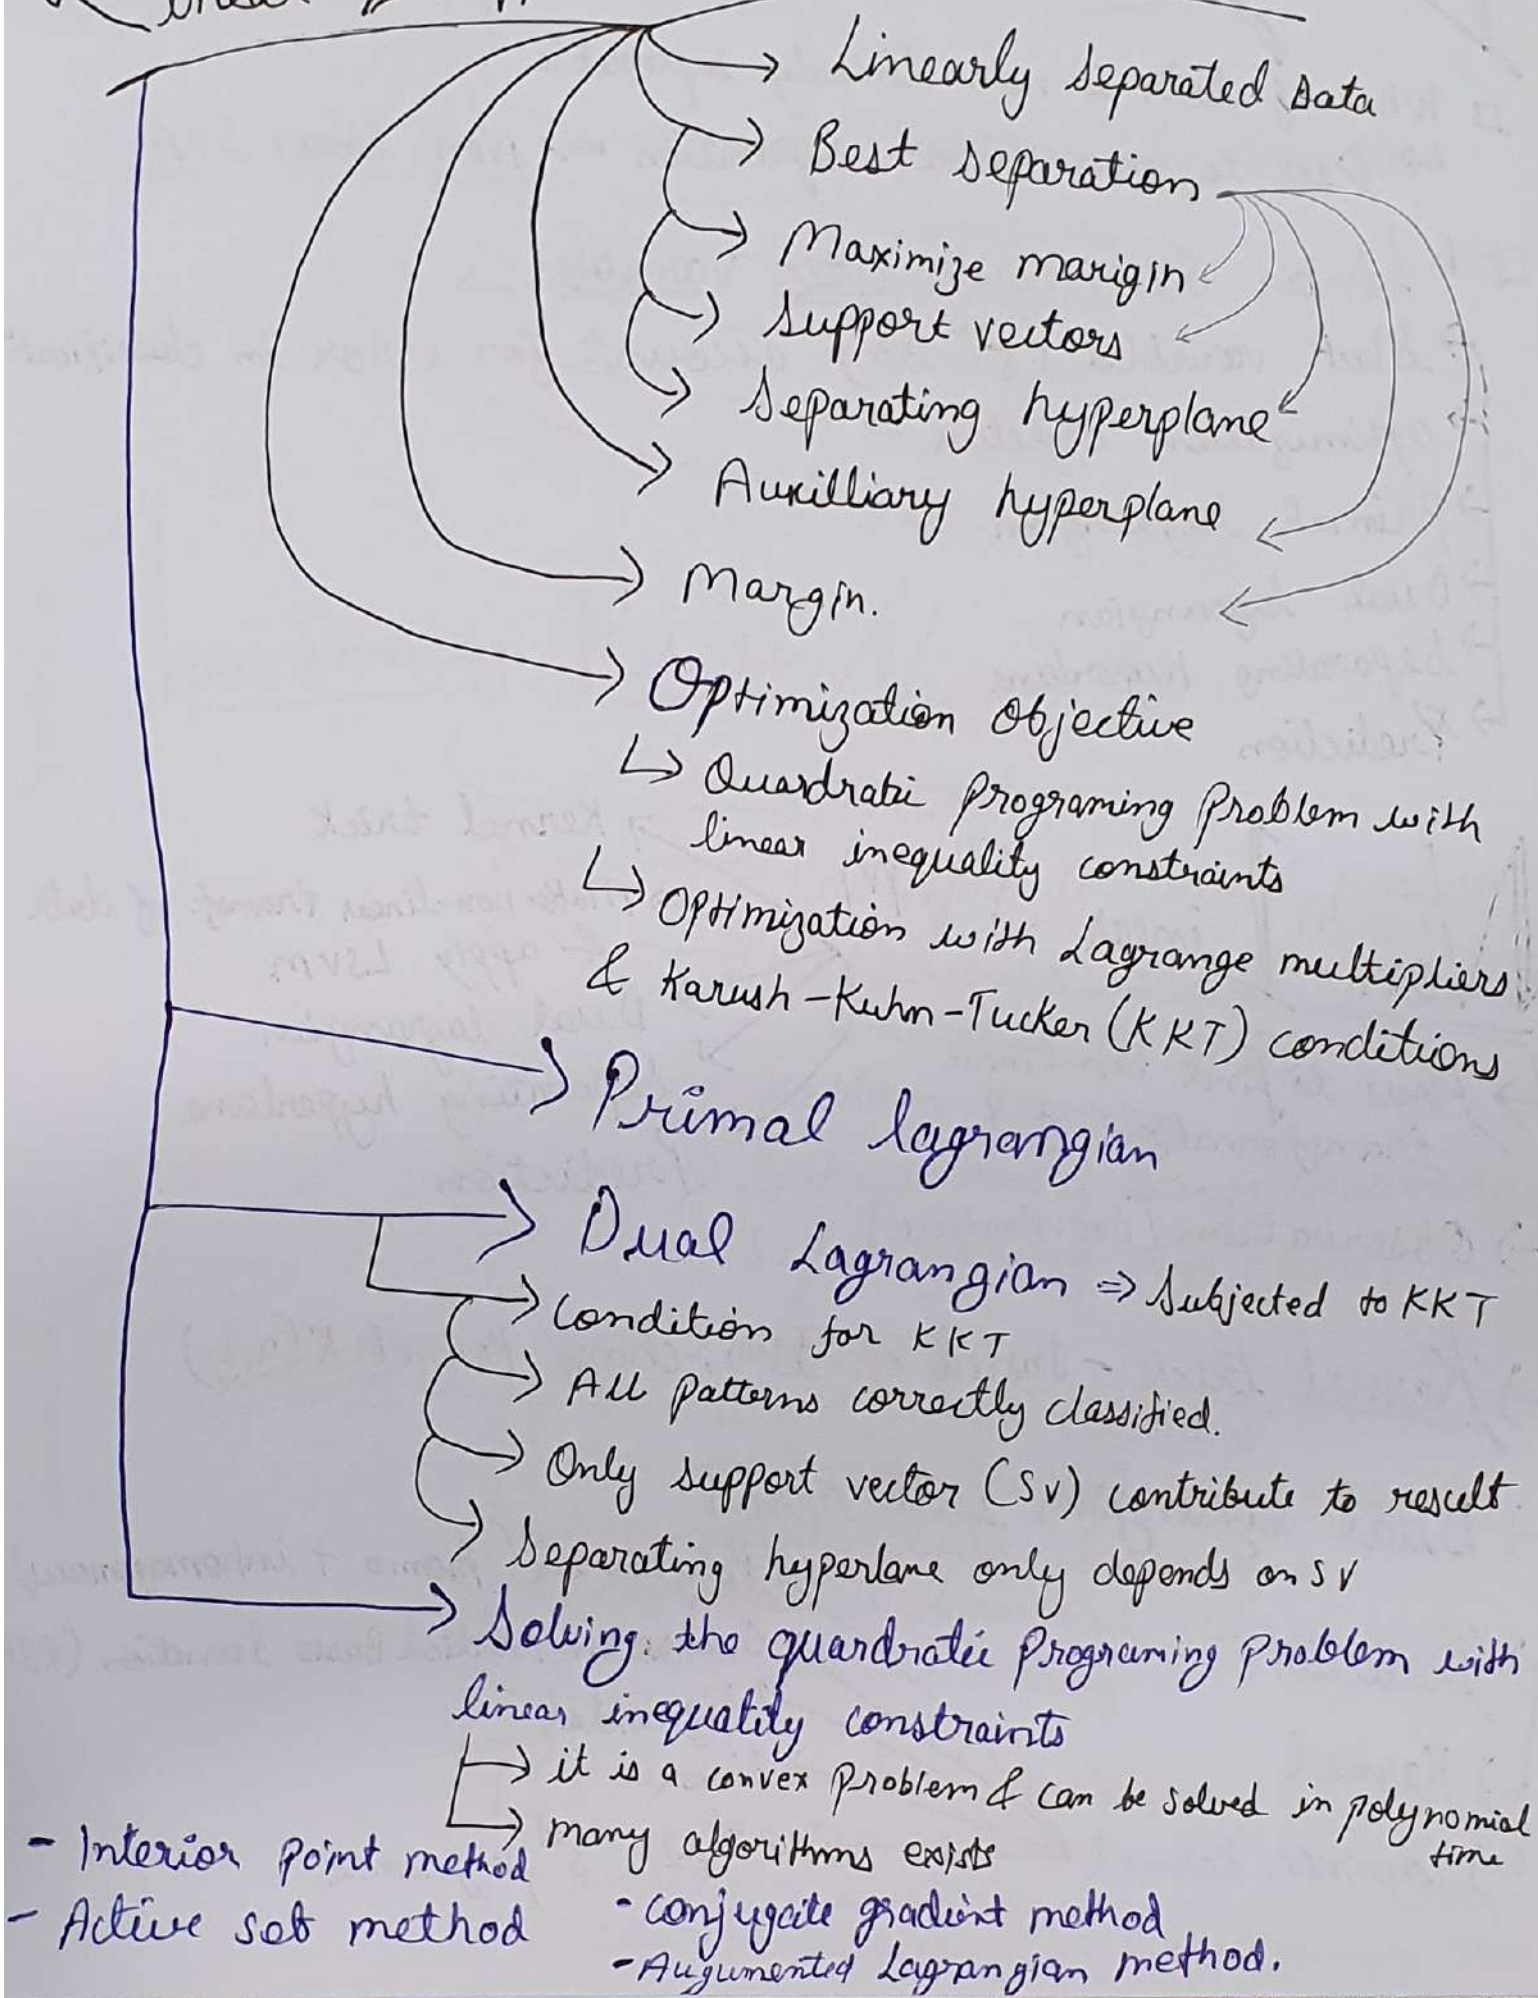 Linearly separated data
Best separation
Maximize marigin
Support vectors
Separating hyperplane
Auxilliary hyperplane
Margin.
Optimization Objective
Quardratic programing problem with
linear inequality constraints
Optimization with Lagrange multipliers
& Karush-Kuhn-Tucker (KKT) conditions
Primal lagrangian
Dual Lagrangian ⇒ Subjected to KKT
Condition for KKT
All patterns correctly classified.
Only support vector (SV) contribute to result
Separating hyperlane only depends on SV
Solving the quardratic programing problem with
linear inequality constraints
it is a convex problem & can be solved in polynomial
time
many algorithms exists
- Interior point method
- Active set method
- conjugate gradient method
- Augumented Lagrangian method.